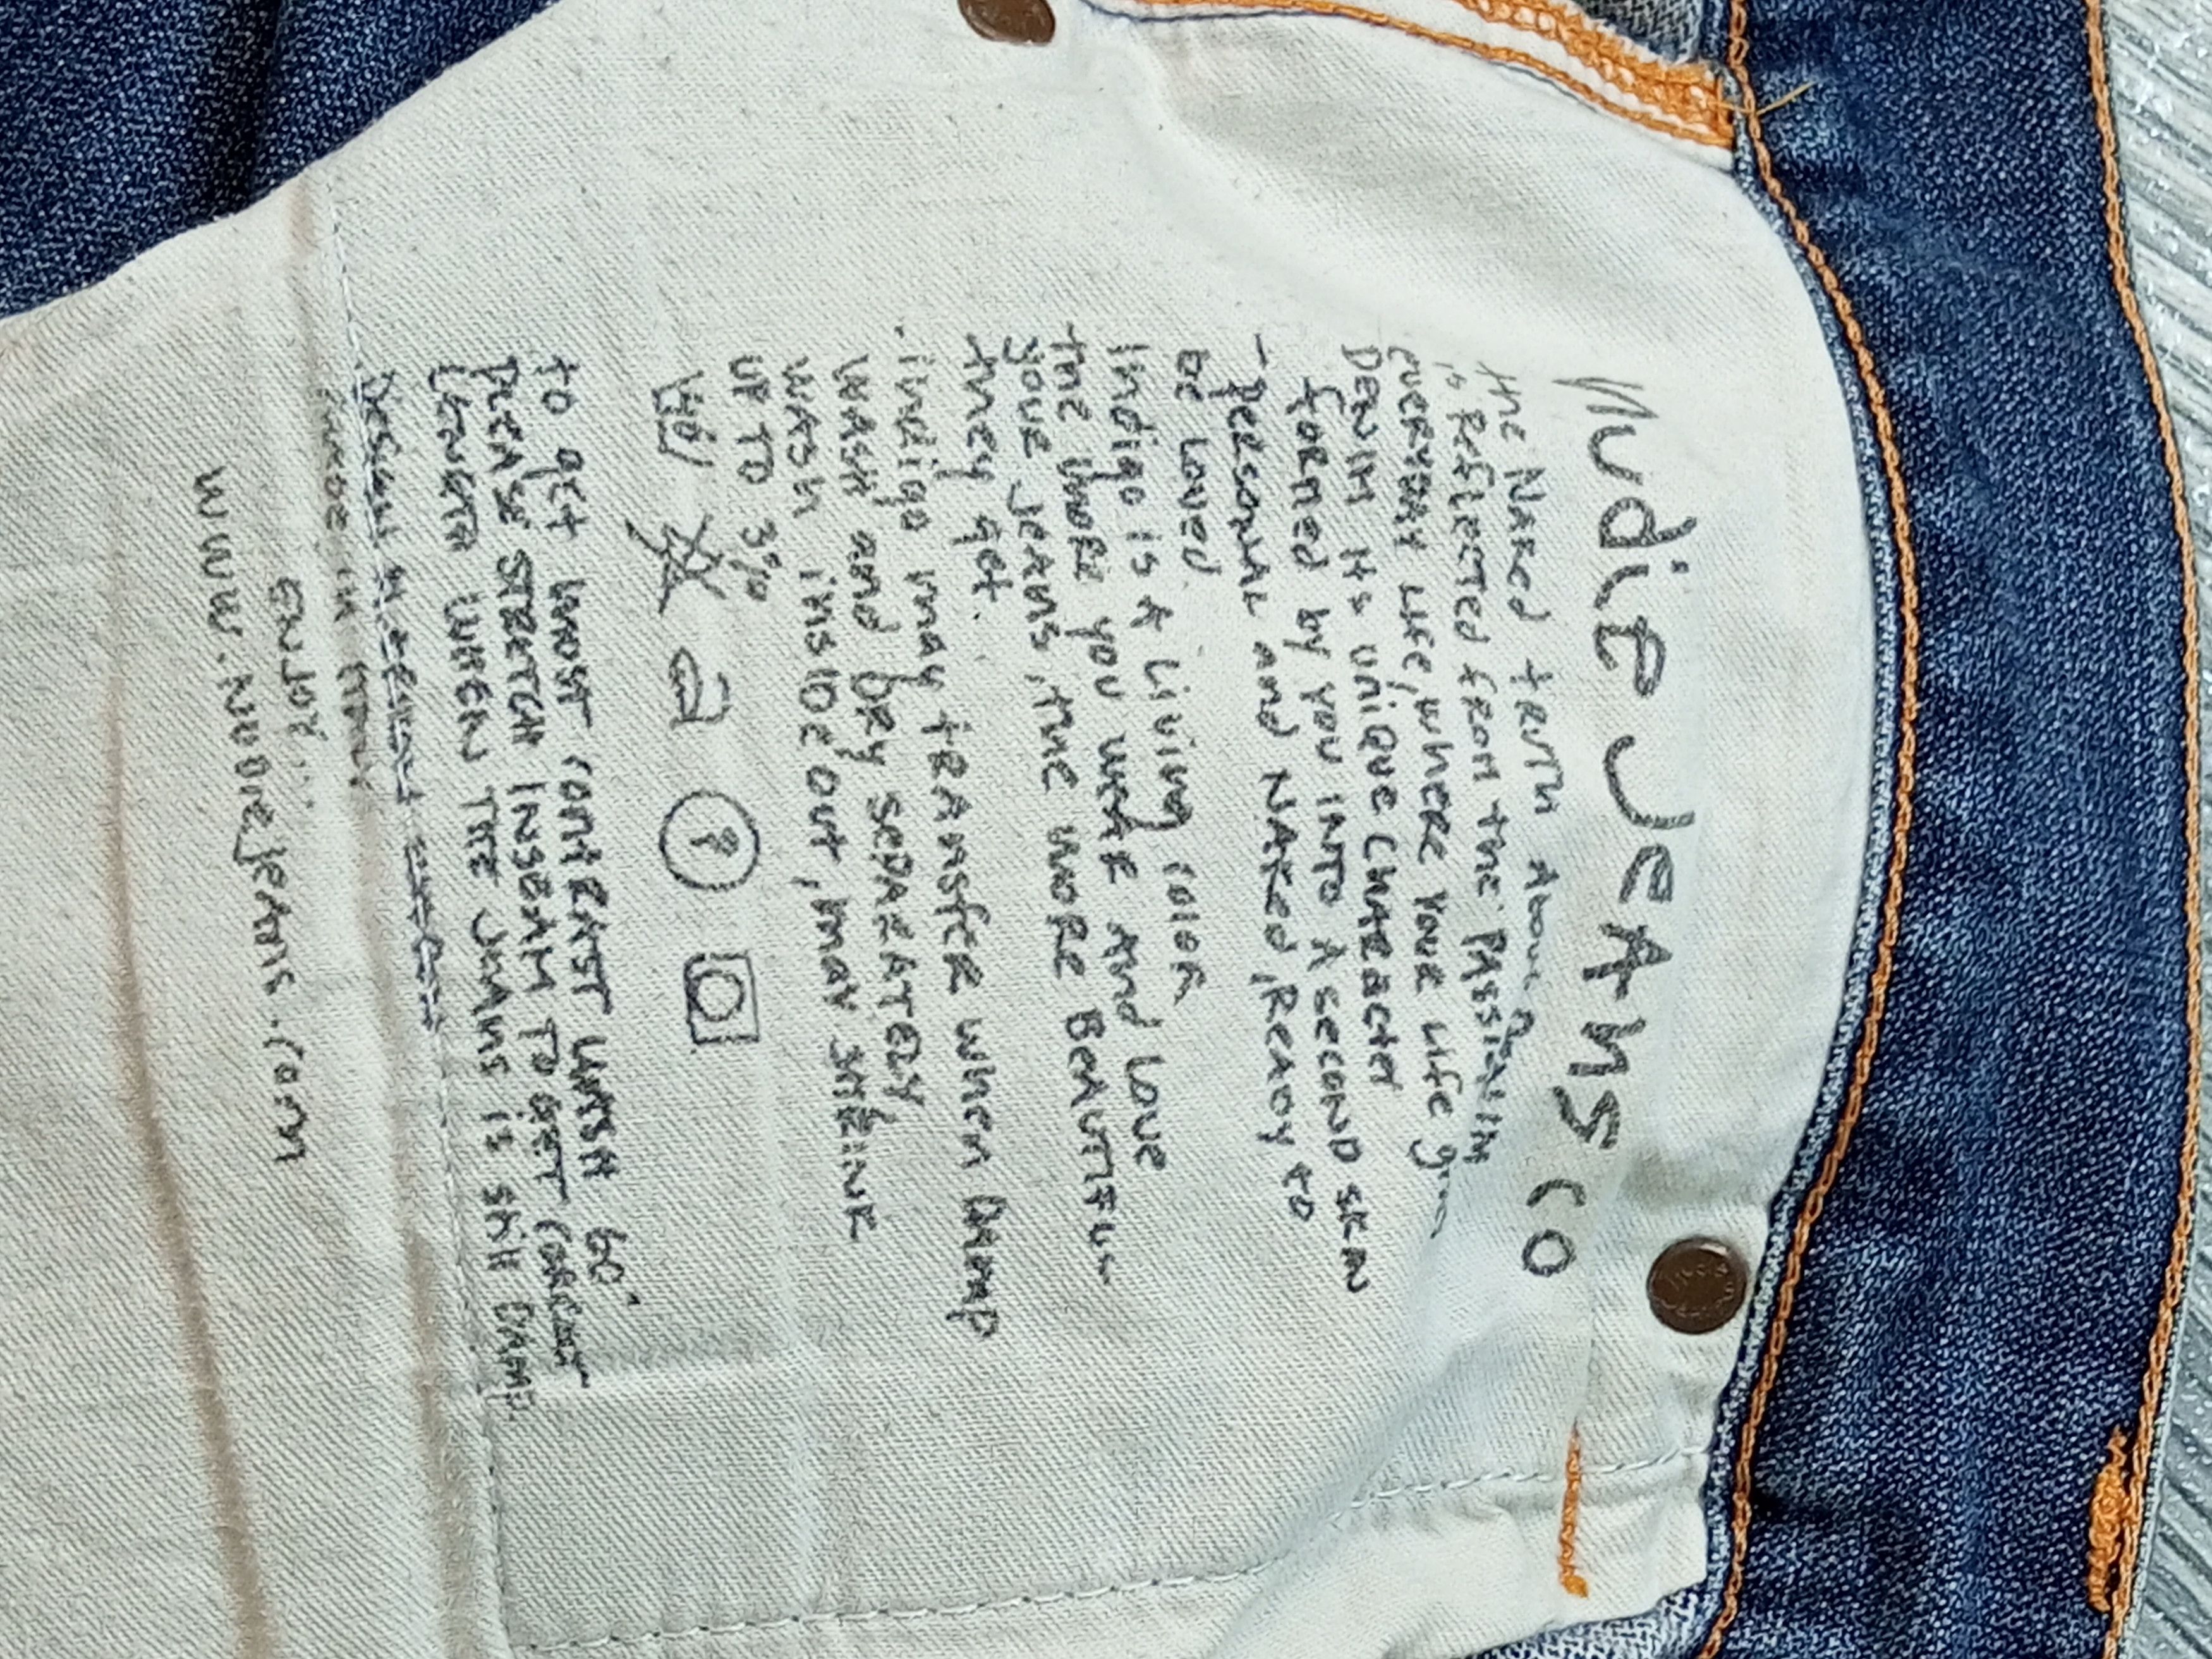 Nudie JEANS CO
the NAKED TRUTH About D
is REFLECTED FROM the PASSION
EVERYDAY LIFE, WHERE YOUR LIFE
DENIM ITS UNIQUE CHARACTER
formed by you INTO A SECOND SKIN
- PERSONAL and NAKED, READY to
BE LOVED.
Indigo is A Living color.
the MORE you WEAR And Love
your JEANS, the MORE BEAUTIFUL
they get.
. indigo may TRANSFER WHEN DAMP
WASH and DRY SEPARATELY
WASH INSIDE OUT, MAY SHRINK
UP TO 3%
40 P
to get MOST CONTRAST WASH 60°
PLEASE STRETCH INSEAM TO GET CORRECT
LENGTH WHEN THE JEANS IS STILL DAMP.
MADE IN ITALY
ENJOY!
WWW.NUDIEJEANS.COM